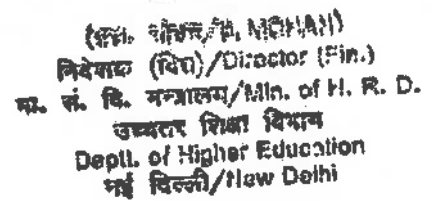 MOHAN)
निदेशक (वित्त)/Director (Fin.)
मा. सं. वि. मन्त्रालय/Min. of H. R. D.
उच्चतर शिक्षा विभाग
Deptt. of Higher Education
नई दिल्ली/New Delhi